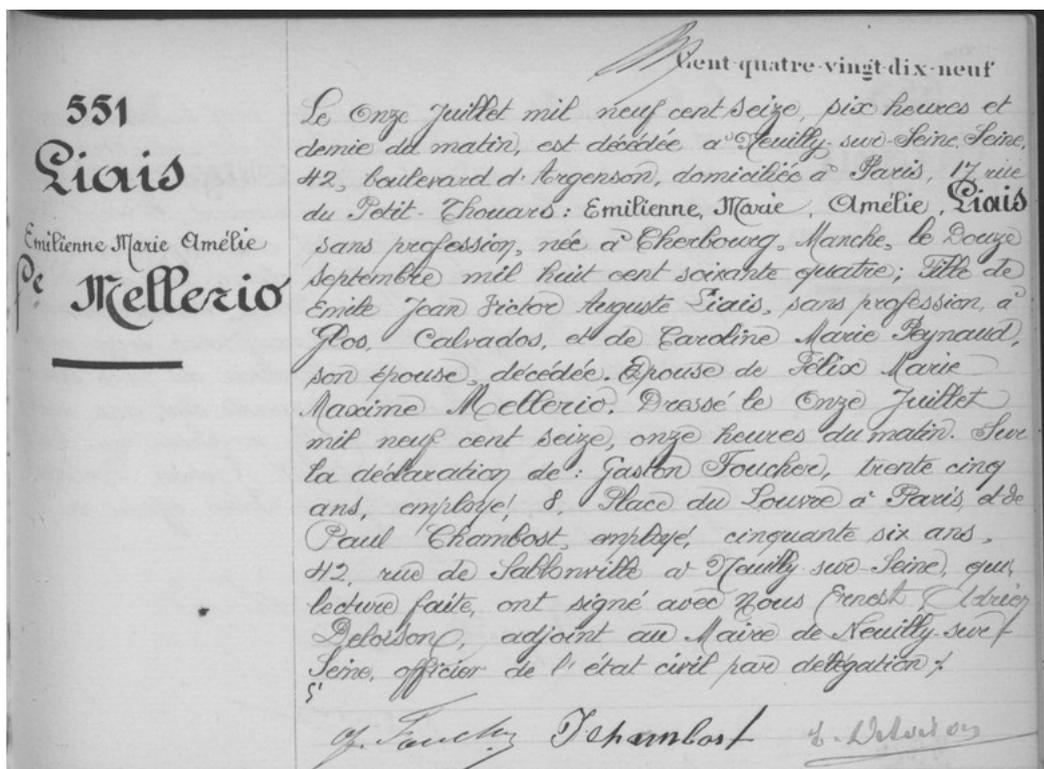 Cent-quatre-vingt-dix-neuf
551
Liais
Emilienne Marie Amélie
fe Mellerio
Le Onze Juillet mil neuf cent seize, six heures et
demie du matin, est décédée à Neuilly-sur-Seine, Seine,
42, boulevard d'Argenson, domiciliée à Paris, 17, rue
du Petit-Thouars : Emilienne, Marie, Amélie, Liais
sans profession, née à Cherbourg, Manche, le Douze
septembre mil huit cent soixante quatre; Fille de
Emile Jean Victor Auguste Liais, sans profession, à
Glos, Calvados, et de Caroline Marie Peynaud,
son épouse, décédée. Epouse de Félix Marie
Maxime Mellerio. Dressé le Onze Juillet
mil neuf cent seize, onze heures du matin. Sur
la déclaration de : Gaston Foucher, trente cinq
ans, employé, 8, Place du Louvre à Paris, et de
Paul Chambost, employé, cinquante six ans,
42, rue de Sablonville à Neuilly-sur-Seine, qui,
lecture faite, ont signé avec Nous Ernest Adrien
Deloison, adjoint au Maire de Neuilly-sur-
Seine, officier de l'état civil par délégation ;.
G. Foucher P Chambost E. Deloison